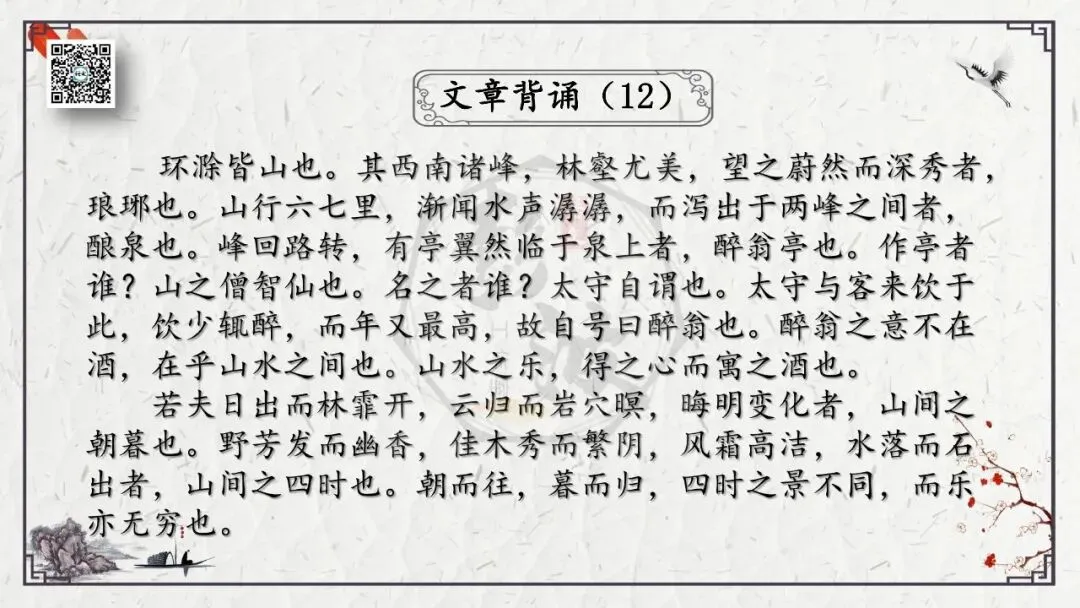 文章背诵（12）
环滁皆山也。其西南诸峰，林壑尤美，望之蔚然而深秀者，
琅琊也。山行六七里，渐闻水声潺潺，而泻出于两峰之间者，
酿泉也。峰回路转，有亭翼然临于泉上者，醉翁亭也。作亭者
谁？山之僧智仙也。名之者谁？太守自谓也。太守与客来饮于
此，饮少辄醉，而年又最高，故自号曰醉翁也。醉翁之意不在
酒，在乎山水之间也。山水之乐，得之心而寓之酒也。
若夫日出而林霏开，云归而岩穴暝，晦明变化者，山间之
朝暮也。野芳发而幽香，佳木秀而繁阴，风霜高洁，水落而石
出者，山间之四时也。朝而往，暮而归，四时之景不同，而乐
亦无穷也。